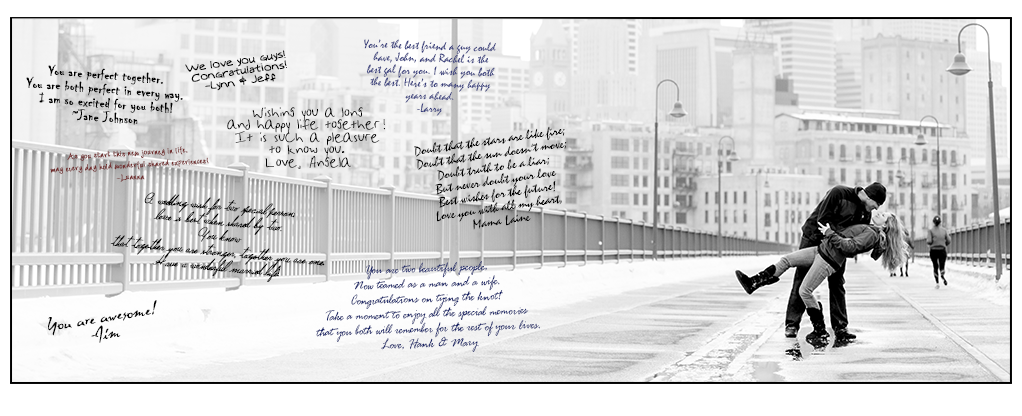 You are perfect together.
You are both perfect in every way.
I am so excited for you both!
~Jane Johnson
We love you guys!
Congratulations!
~Lynn & Jeff
You're the best friend a guy could
have, John, and Rachel is the
best gal for you. I wish you both
the best. Here's to many happy
years ahead.
-Larry
Wishing you a long
and happy life together!
It is such a pleasure
to know you.
Love, Angela
As you start this new journey in life,
may every day hold wonderful shared experiences!
~Luanna
Doubt that the stars are like fire;
Doubt that the sun doesn't move;
Doubt truth to be a liar;
But never doubt your love
Best wishes for the future!
Love you with all my heart,
Mama Laine
A wedding wish for two special persons,
love is best when shared by two.
You know
that together you are stronger, together you are one
Have a wonderful married life
You are two beautiful people.
Now teamed as a man and a wife.
Congratulations on tying the knot!
Take a moment to enjoy all the special memories
that you both will remember for the rest of your lives.
Love, Hank & Mary
You are awesome!
-Jim